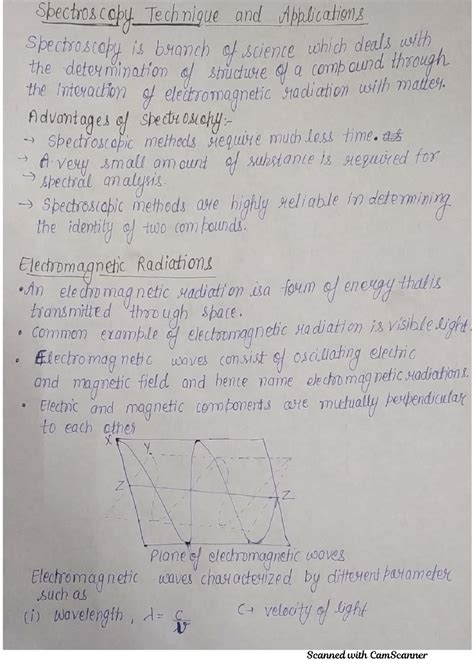 Spectroscopy Technique and Applications
Spectroscopy is branch of science which deals with
the determination of structure of a compound through
the interaction of electromagnetic radiation with matter.
Advantages of Spectroscopy:-
→ Spectroscopic methods require much less time.
→ A very small amount of substance is required for
→ spectral analysis.
→ Spectroscopic methods are highly reliable in determining
the identity of two compounds.
Electromagnetic Radiations
• An electromagnetic radiation is a form of energy that is
transmitted through space.
• Common example of electromagnetic radiation is visible light.
• Electromagnetic waves consist of oscillating electric
and magnetic field and hence name electromagnetic radiations.
• Electric and magnetic components are mutually perpendicular
to each other
X Y
Z Z
Plane of electromagnetic waves
Electromagnetic waves characterized by different parameter
such as
(i) wavelength, λ = c/ν C → velocity of light
Scanned with CamScanner